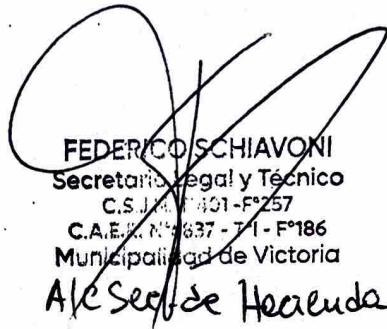 FEDERICO SCHIAVONI
Secretario Legal y Técnico
C.S.J. -F°257
C.A.E.R. - T°I - F°186
Municipalidad de Victoria
A/C Sec. de Hacienda